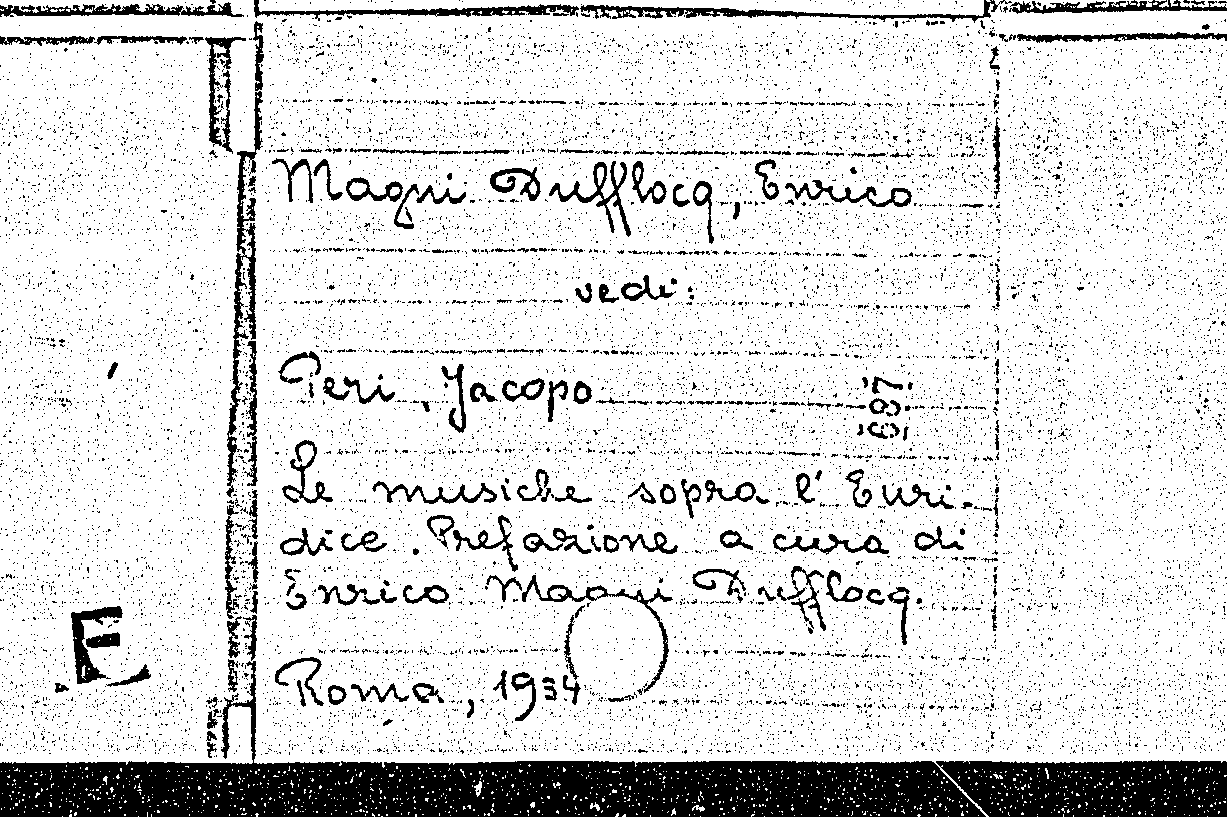 Magni Dufflocq, Enrico
vedi:
Peri, Jacopo
Le musiche sopra l'Euri-
dice. Prefazione a cura di
Enrico Magni Dufflocq.
Roma, 1934
E